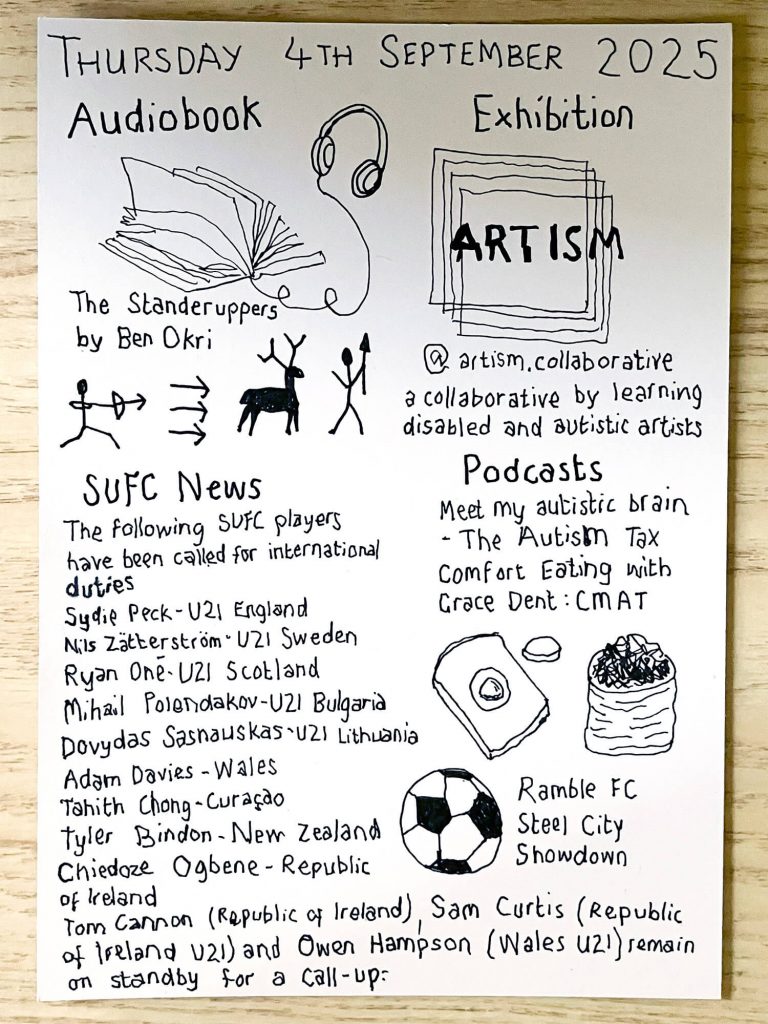 THURSDAY 4TH SEPTEMBER 2025
Audiobook
The Standeruppers
by Ben Okri
Exhibition
ARTISM
@ artism.collaborative
a collaborative by learning
disabled and autistic artists
SUFC News
The following SUFC players
have been called for international
duties
Sydie Peck - U21 England
Nils Zätterström - U21 Sweden
Ryan Oné - U21 Scotland
Mihail Polendakov - U21 Bulgaria
Dovydas Sasnauskas - U21 Lithuania
Adam Davies - Wales
Tahith Chong - Curaçao
Tyler Bindon - New Zealand
Chiedoze Ogbene - Republic
of Ireland
Tom Cannon (Republic of Ireland), Sam Curtis (Republic
of Ireland U21) and Owen Hampson (Wales U21) remain
on standby for a call-up.
Podcasts
Meet my autistic brain
- The Autism Tax
Comfort Eating with
Grace Dent: CMAT
Ramble FC
Steel City
Showdown